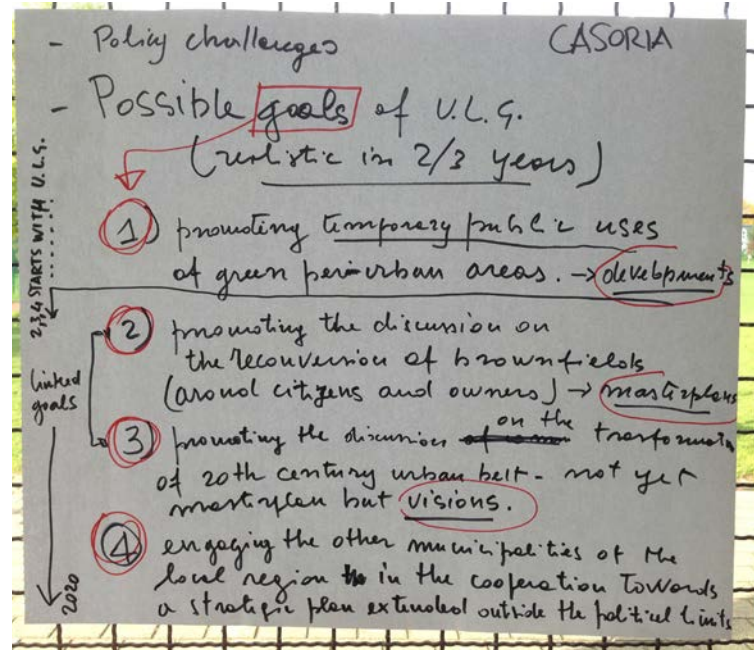 - Policy challenges
CASORIA
- Possible goals of U.L.G.
(realistic in 2/3 years)
1) promoting temporary public uses
of green peri-urban areas. → developments
2) promoting the discussion on
the reconversion of brownfields
(around citizens and owners) → masterplans
3) promoting the discussion on the
of 20th century urban belt - not yet
masterplan but visions.
4) engaging the other municipalities of the
local region in the cooperation towards
a strategic plan extended outside the political limits
2,3,4 STARTS WITH U.L.G.
linked
goals
2020